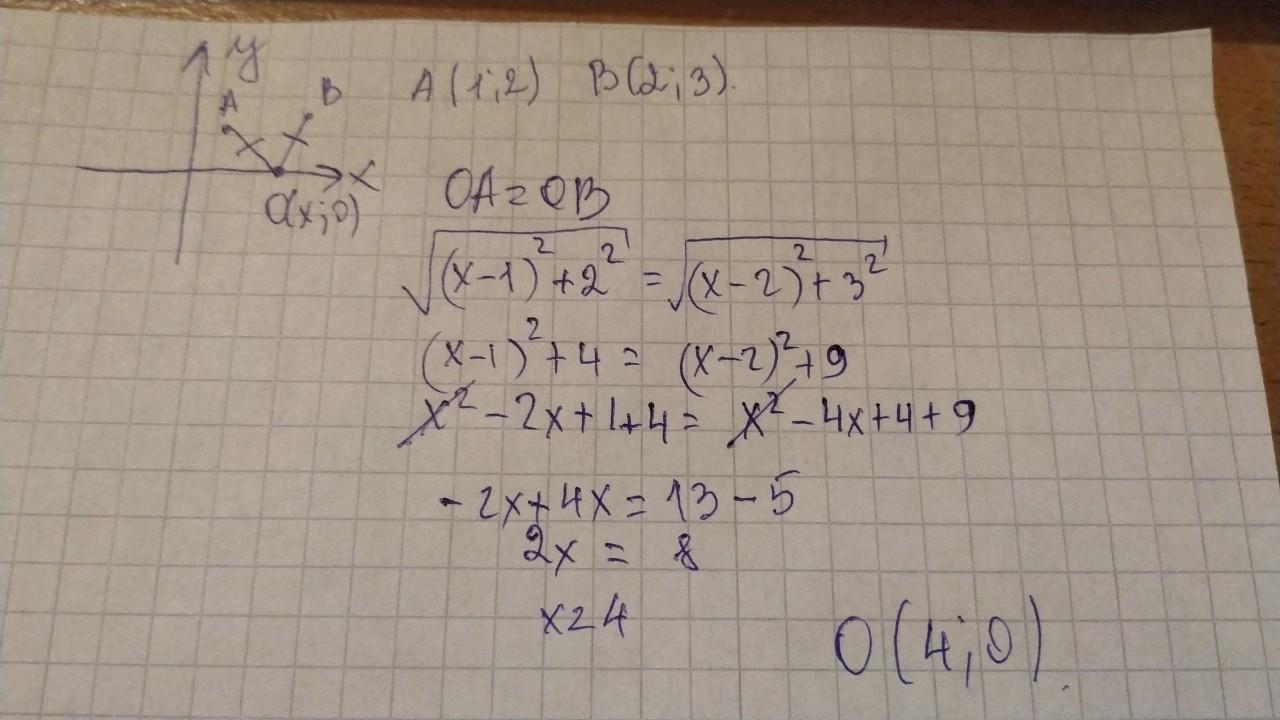 y
A B A(1;2) B(2;3).
x
O(x;0)
OA=OB
√((x-1)²+2²) = √((x-2)²+3²)
(x-1)²+4 = (x-2)²+9
x²-2x+1+4= x²-4x+4+9
-2x+4x=13-5
2x = 8
x=4
O(4;0).